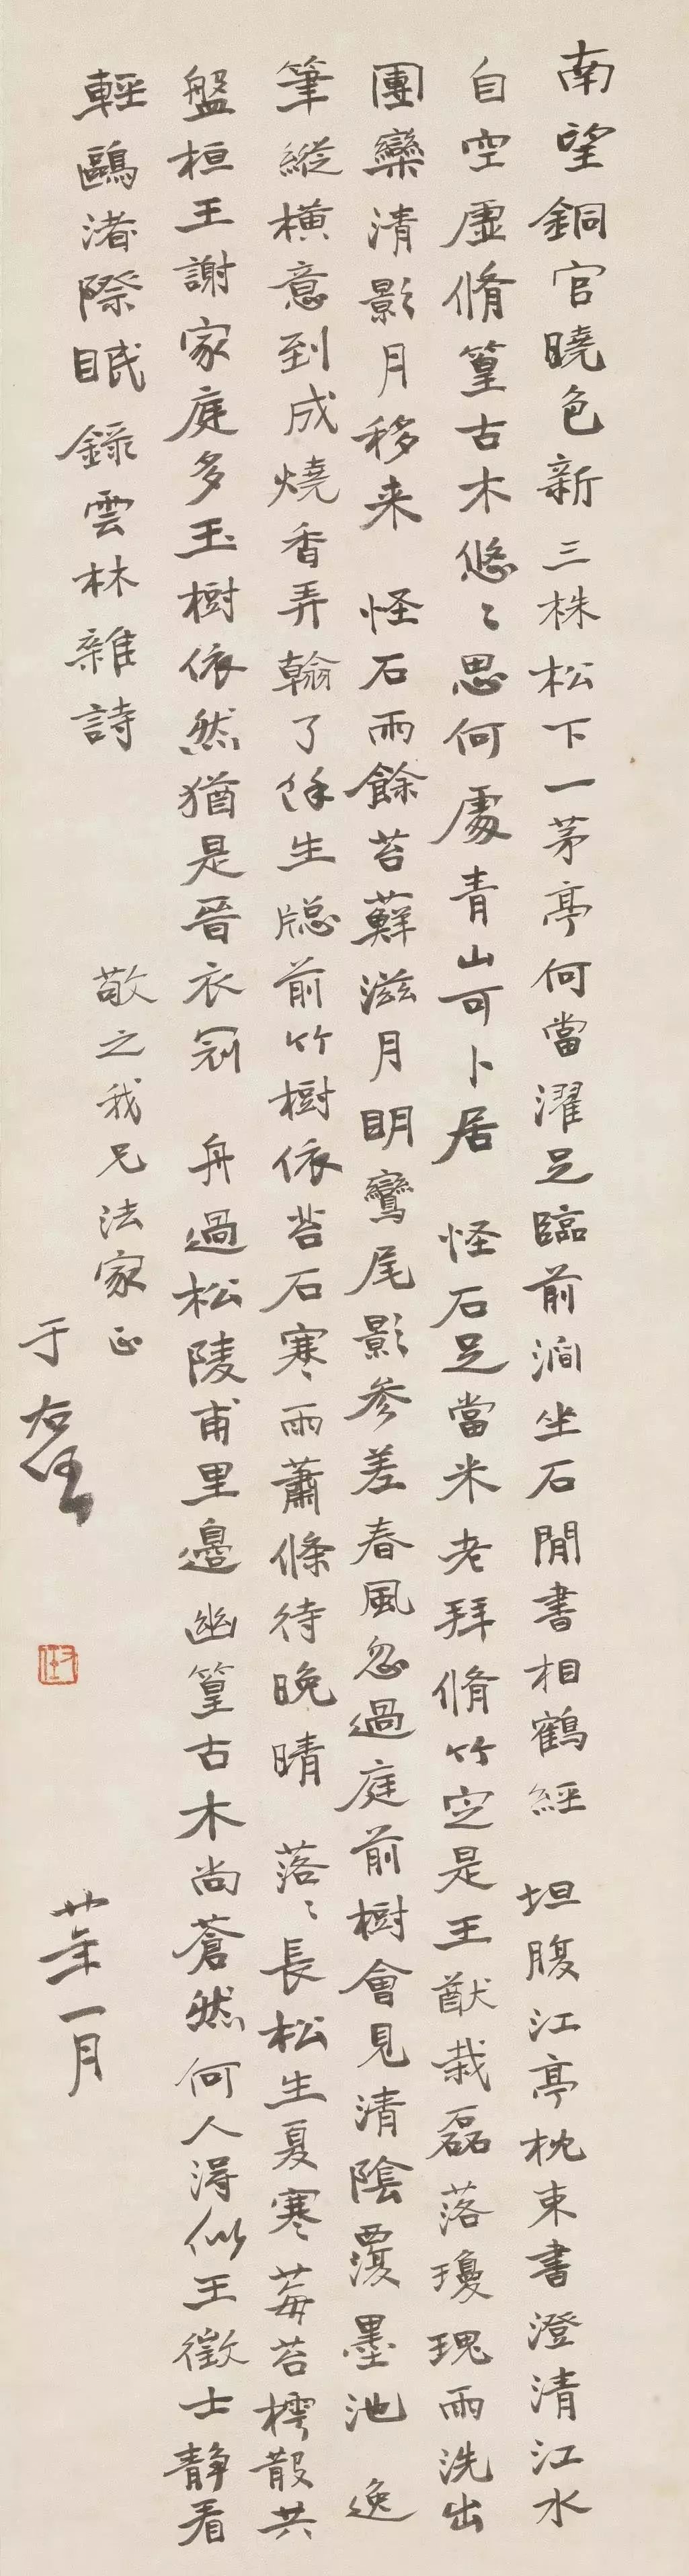 南望銅官曉色新三株松下一茅亭何當濯足臨前澗坐石閒書相鶴經　坦腹江亭枕束書澄清江水
自空虛脩篁古木悠〻思何處青山可卜居　怪石足當米老拜脩竹定是王猷栽磊落瓊瑰雨洗出
團欒清影月移来　怪石雨餘苔蘚滋月明鸞尾影參差春風忽過庭前樹會見清陰覆墨池　逸
筆縱橫意到成燒香弄翰了餘生窗前竹樹依苔石寒雨蕭條待晚晴　落〻長松生夏寒莓苔樗散共
盤桓王謝家庭多玉樹依然猶是晉衣冠　舟過松陵甫里邊幽篁古木尚蒼然何人得似王徵士靜看
輕鷗渚際眠　錄雲林雜詩
敬之我兄法家正
于右任
年一月